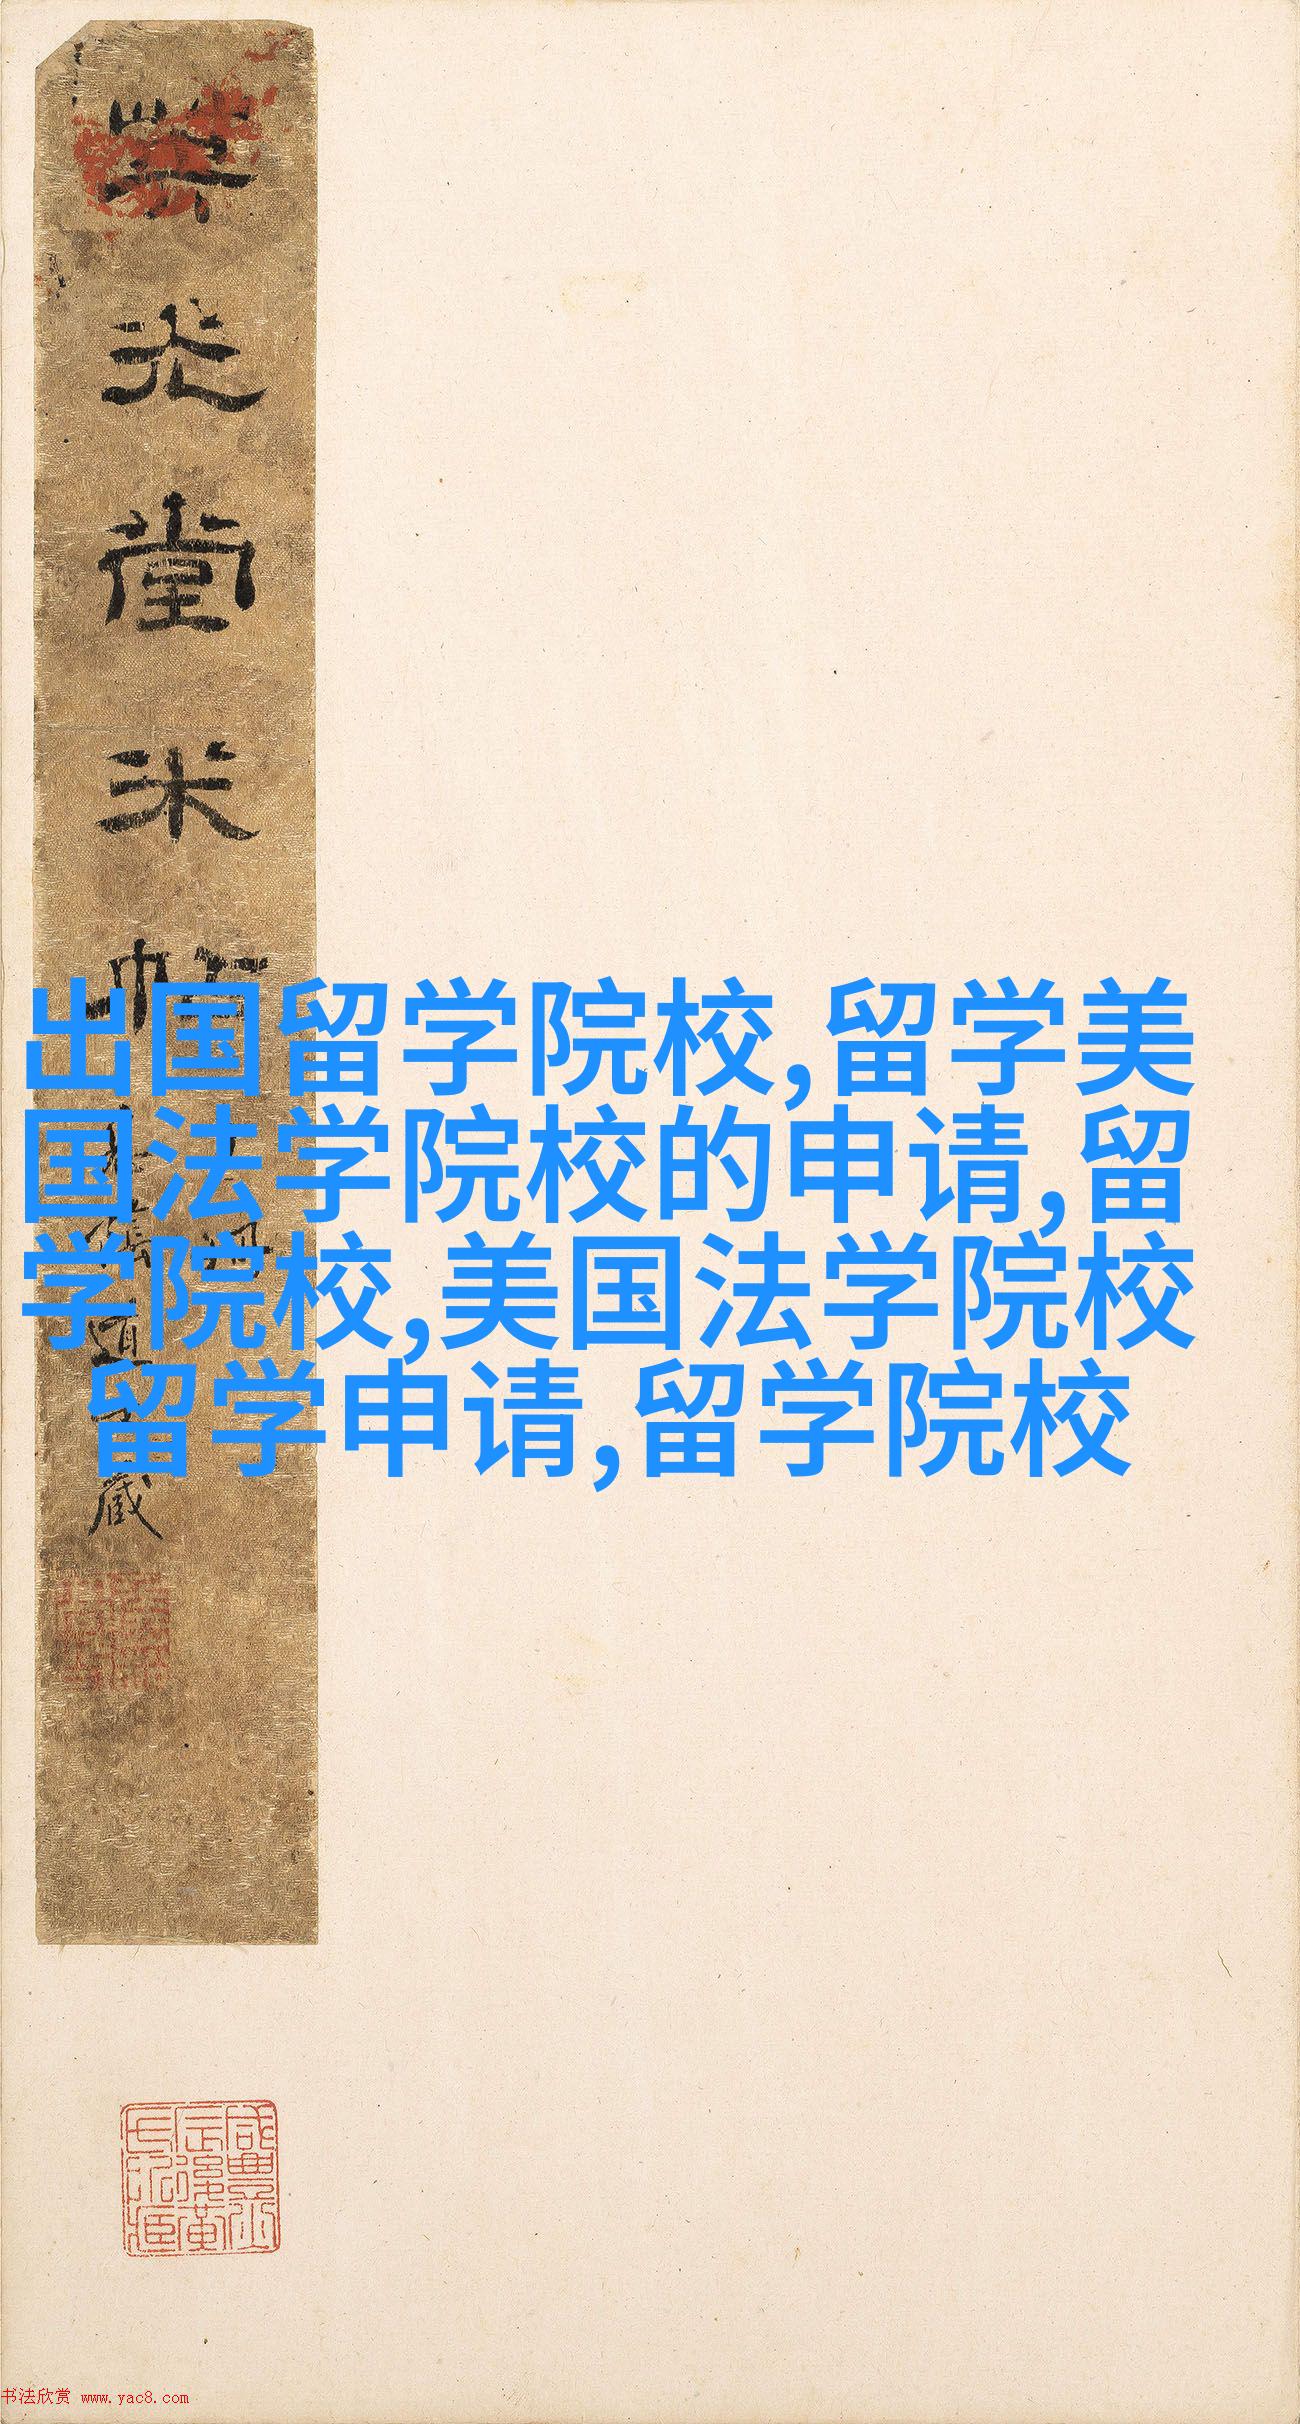 光堂米帖
藏
出国留学院校,留学美
国法学院校的申请,留
学院校,美国法学院校
留学申请,留学院校
书法欣赏 www.yac8.com